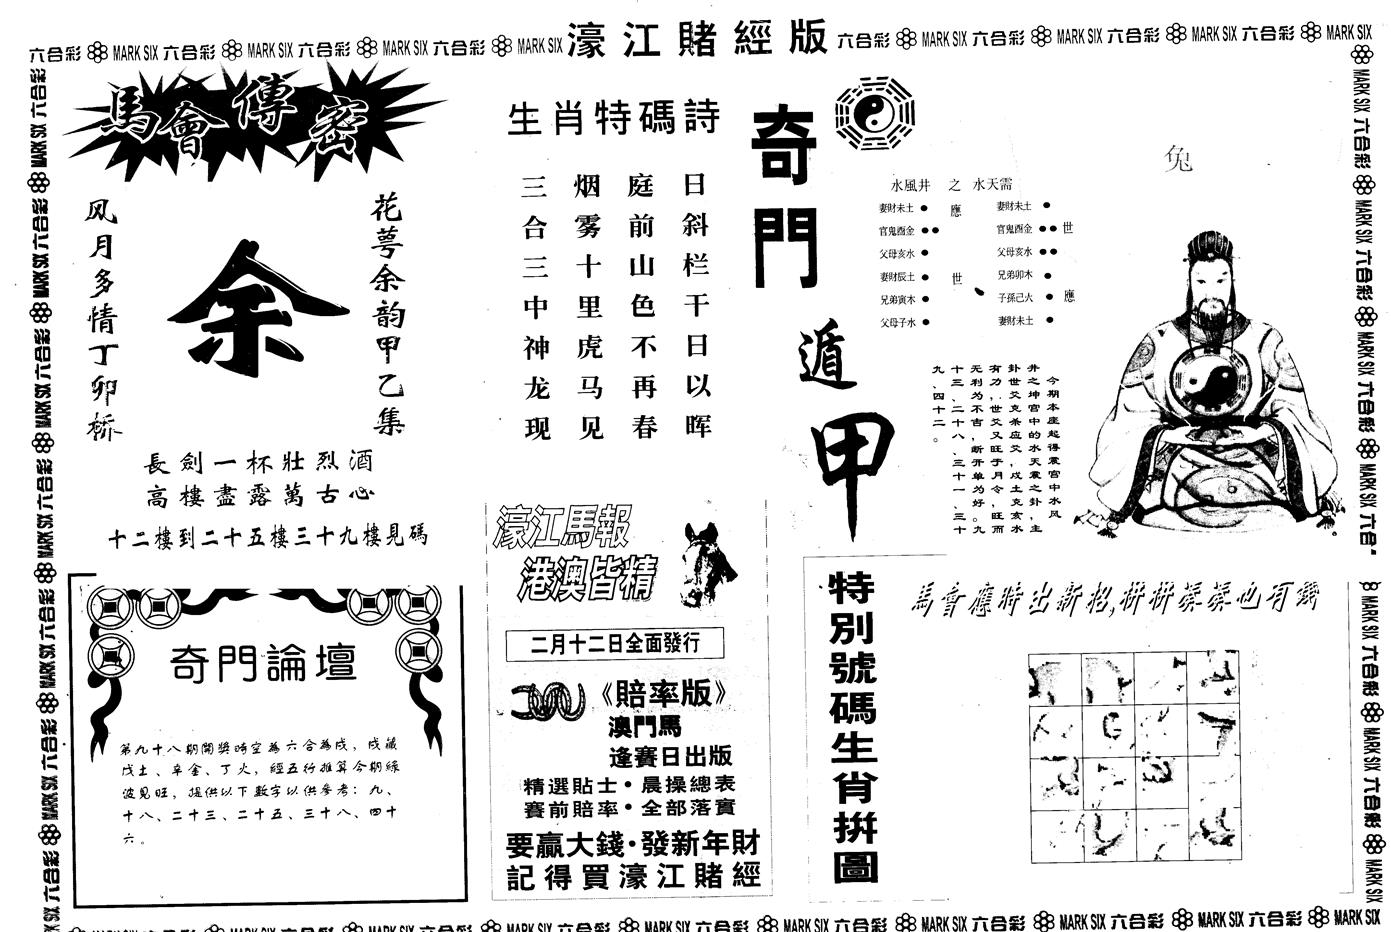 六合彩 MARK SIX 六合彩 MARK SIX 六合彩 MARK SIX 六合彩 MARK SIX 濠江賭經版 六合彩 MARK SIX 六合彩 MARK SIX 六合彩 MARK SIX 六合彩 MARK SIX
馬會傳密
花萼余韵甲乙集
余
风月多情丁卯桥
長劍一杯壯烈酒
高樓盡露萬古心
十二樓到二十五樓三十九樓見碼
奇門論壇
第九十八期開獎時空為六合為戌，戌藏
戊土、辛金、丁火，經五行推算今期綠
波見旺，提供以下數字以供參考：九、
十八、二十三、二十五、三十八、四十
六。
生肖特碼詩
日斜栏干日以晖
庭前山色不再春
烟雾十里虎马见
三合三中神龙现
濠江馬報
港澳皆精
二月十二日全面發行
《賠率版》
澳門馬
逢賽日出版
精選貼士·晨操總表
賽前賠率·全部落實
要贏大錢·發新年財
記得買濠江賭經
奇門遁甲
兔
水風井 之 水天需
妻財未土 應 妻財未土
官鬼酉金 官鬼酉金 世
父母亥水 父母亥水
妻財辰土 世 兄弟卯木
兄弟寅木 子孫己火 應
父母子水 妻財未土
今期本座起得震宫中水风
井之坤宫中的水天震之卦，主
卦世爻克杀应爻，戍土克亥水
有力，世爻又旺于月令，旺而
无利为不吉，断开单为好。九
十三、二十八、三十一、三十
九、四十二。
特別號碼生肖拼圖
馬會應時出新招,拼拼湊湊也有錢
六合彩 MARK SIX 六合彩 MARK SIX 六合彩 MARK SIX 六合彩 MARK SIX 六合彩 MARK SIX 六合彩 MARK SIX